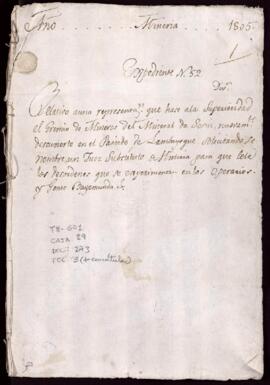 Año Mineria 1805
1
Expediente N. 52
Relativo a una represent.n que hace a la Superioridad
el Gremio de Mineros del Mineral de
descuvierto en el Partido de Lambayeque solicitando se
nombre un Juez Substituto de Mineria para que cele
los desordenes que se experimentan en los Operarios
y Gente Bagamunda &
TM-GO1
CAJA 29
DOC: 273
FOL: 3 (+ carátula)